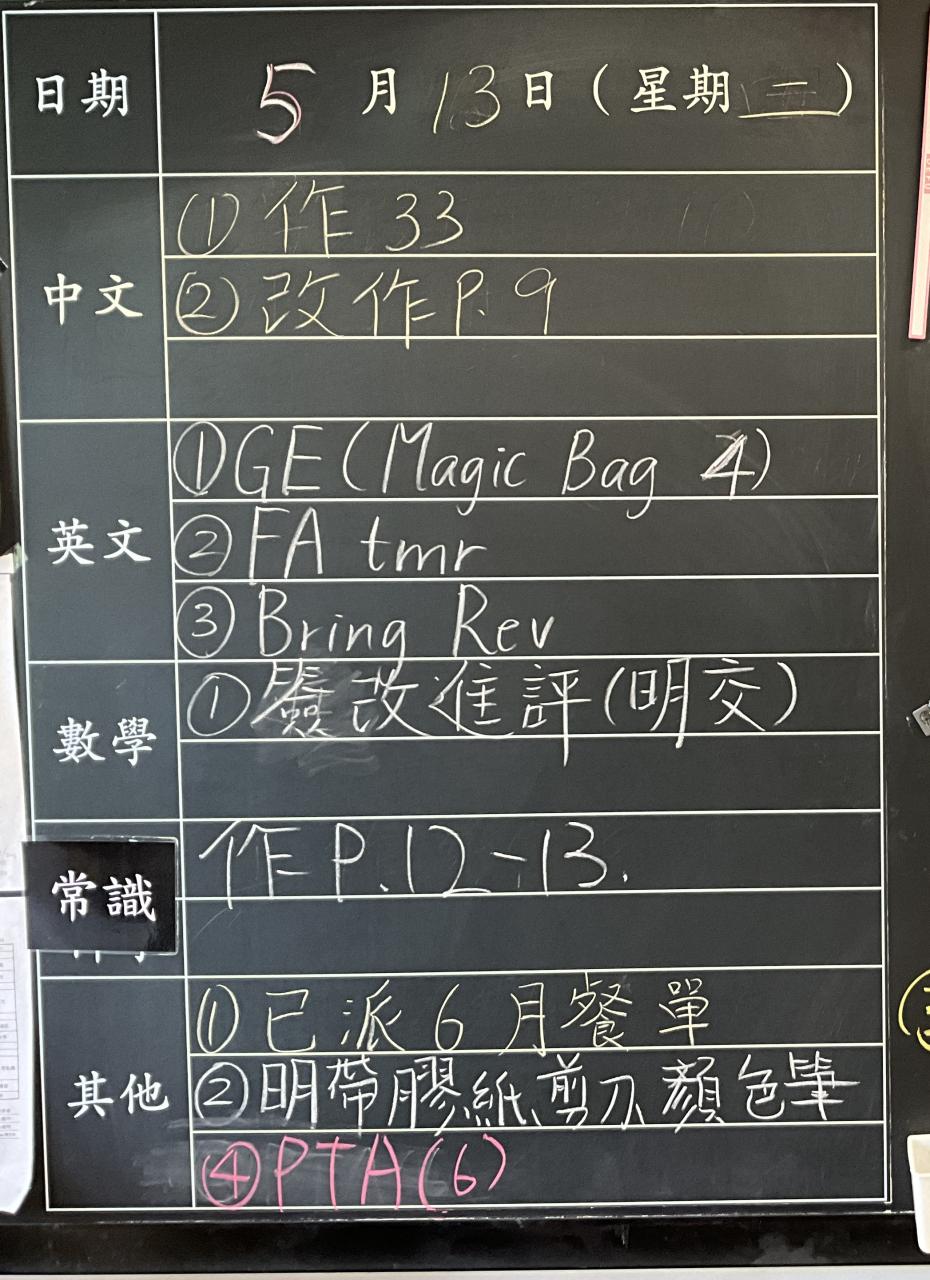 日期 5 月 13 日 (星期二)
中文 ① 作 33
② 改作 P. 9
英文 ① GE (Magic Bag 4)
② FA tmr
③ Bring Rev
數學 ① 簽改進評 (明交)
常識 作 P. 12-13.
其他 ① 已派 6 月餐單
② 明帶膠紙、剪刀、顏色筆
④ PTA (6)